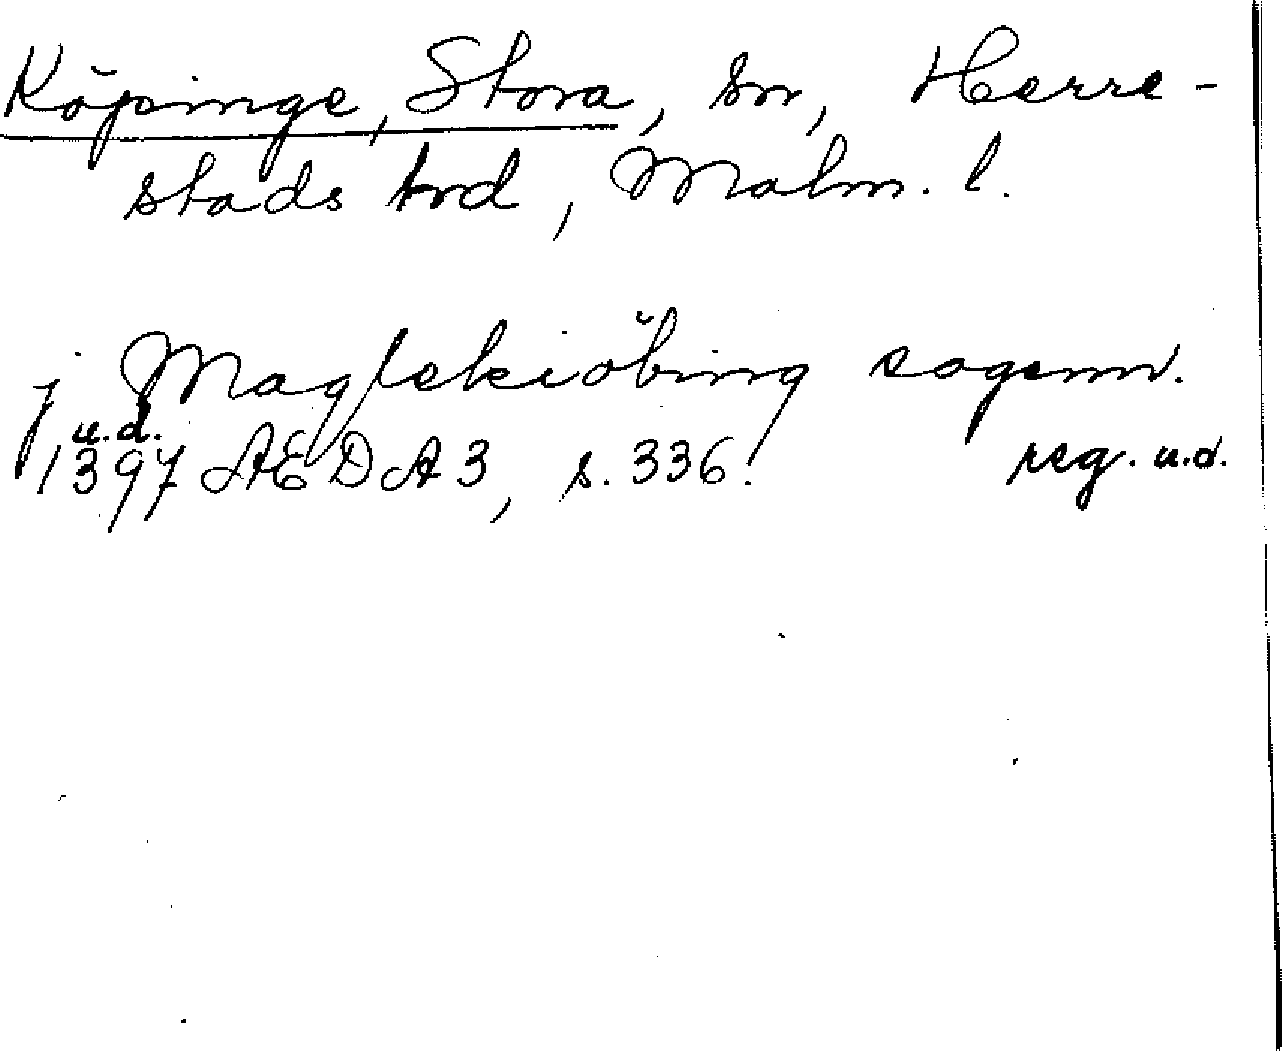 Köpinge, Stora, sn, Herre-
stads hd, Malm. l.
j Maglekiöbing sogenn.
u.d.
1397 AEDA 3, s. 336. reg. u.d.